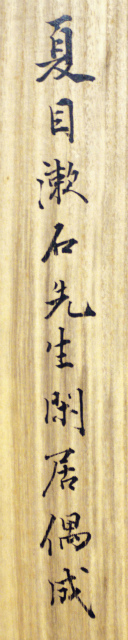 夏目漱石先生閑居偶成